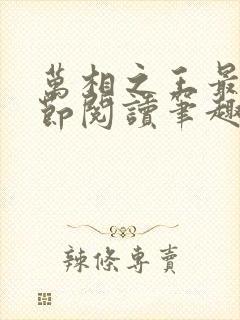 萬相之王最
節閱讀筆趣
辣條專賣